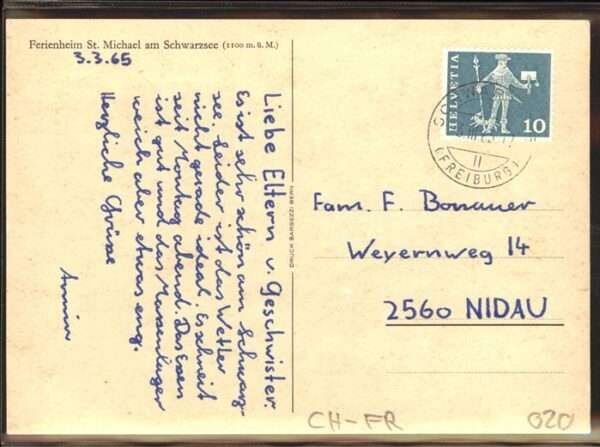 Ferienheim St. Michael am Schwarzsee (1100 m. ü. M.)
3.3.65
Liebe Eltern u. Geschwister.
Es ist sehr schön am Schwarz-
see. Leider ist das Wetter
nicht gerade ideal. Es schneit
seit Montag abend. Das Essen
ist gut und das Massenlager
weich aber etwas eng.
Herzliche Grüsse
Armin
DRUCK BARGEZZI BERN
HELVETIA
10
II
(FREIBURG)
Fam. F. Bonauer
Weyernweg 14
2560 NIDAU
CH-FR
020